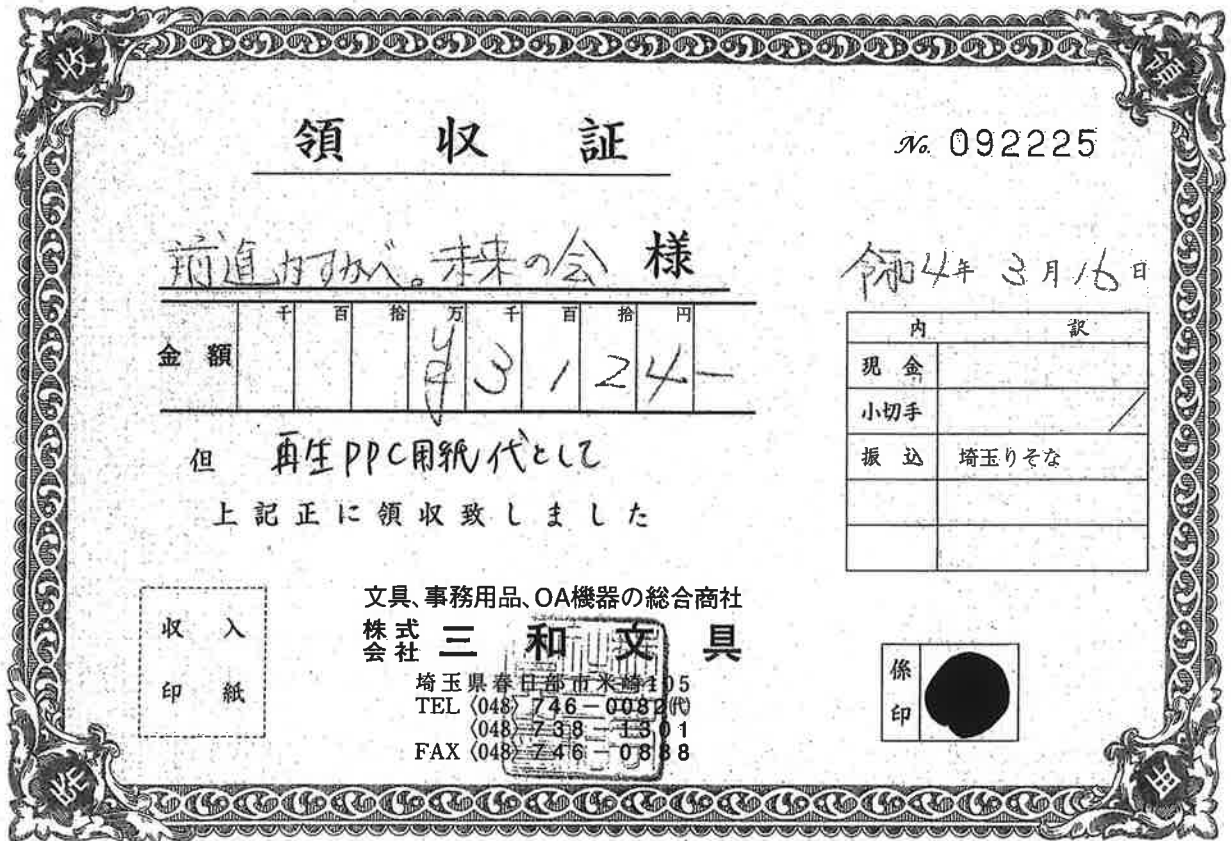 領収証
No. 092225
前進かすかべ。未来の会 様
令和4年 3月16日
千 百 拾 万 千 百 拾 円
金額 ¥3124-
内訳
現金
小切手
振込 埼玉りそな
但 再生PPC用紙代として
上記正に領収致しました
収入
印紙
文具、事務用品、OA機器の総合商社
株式会社 三和文具
埼玉県春日部市米崎105
TEL (048) 746-0082(代)
(048) 738-1301
FAX (048) 746-0888
係印